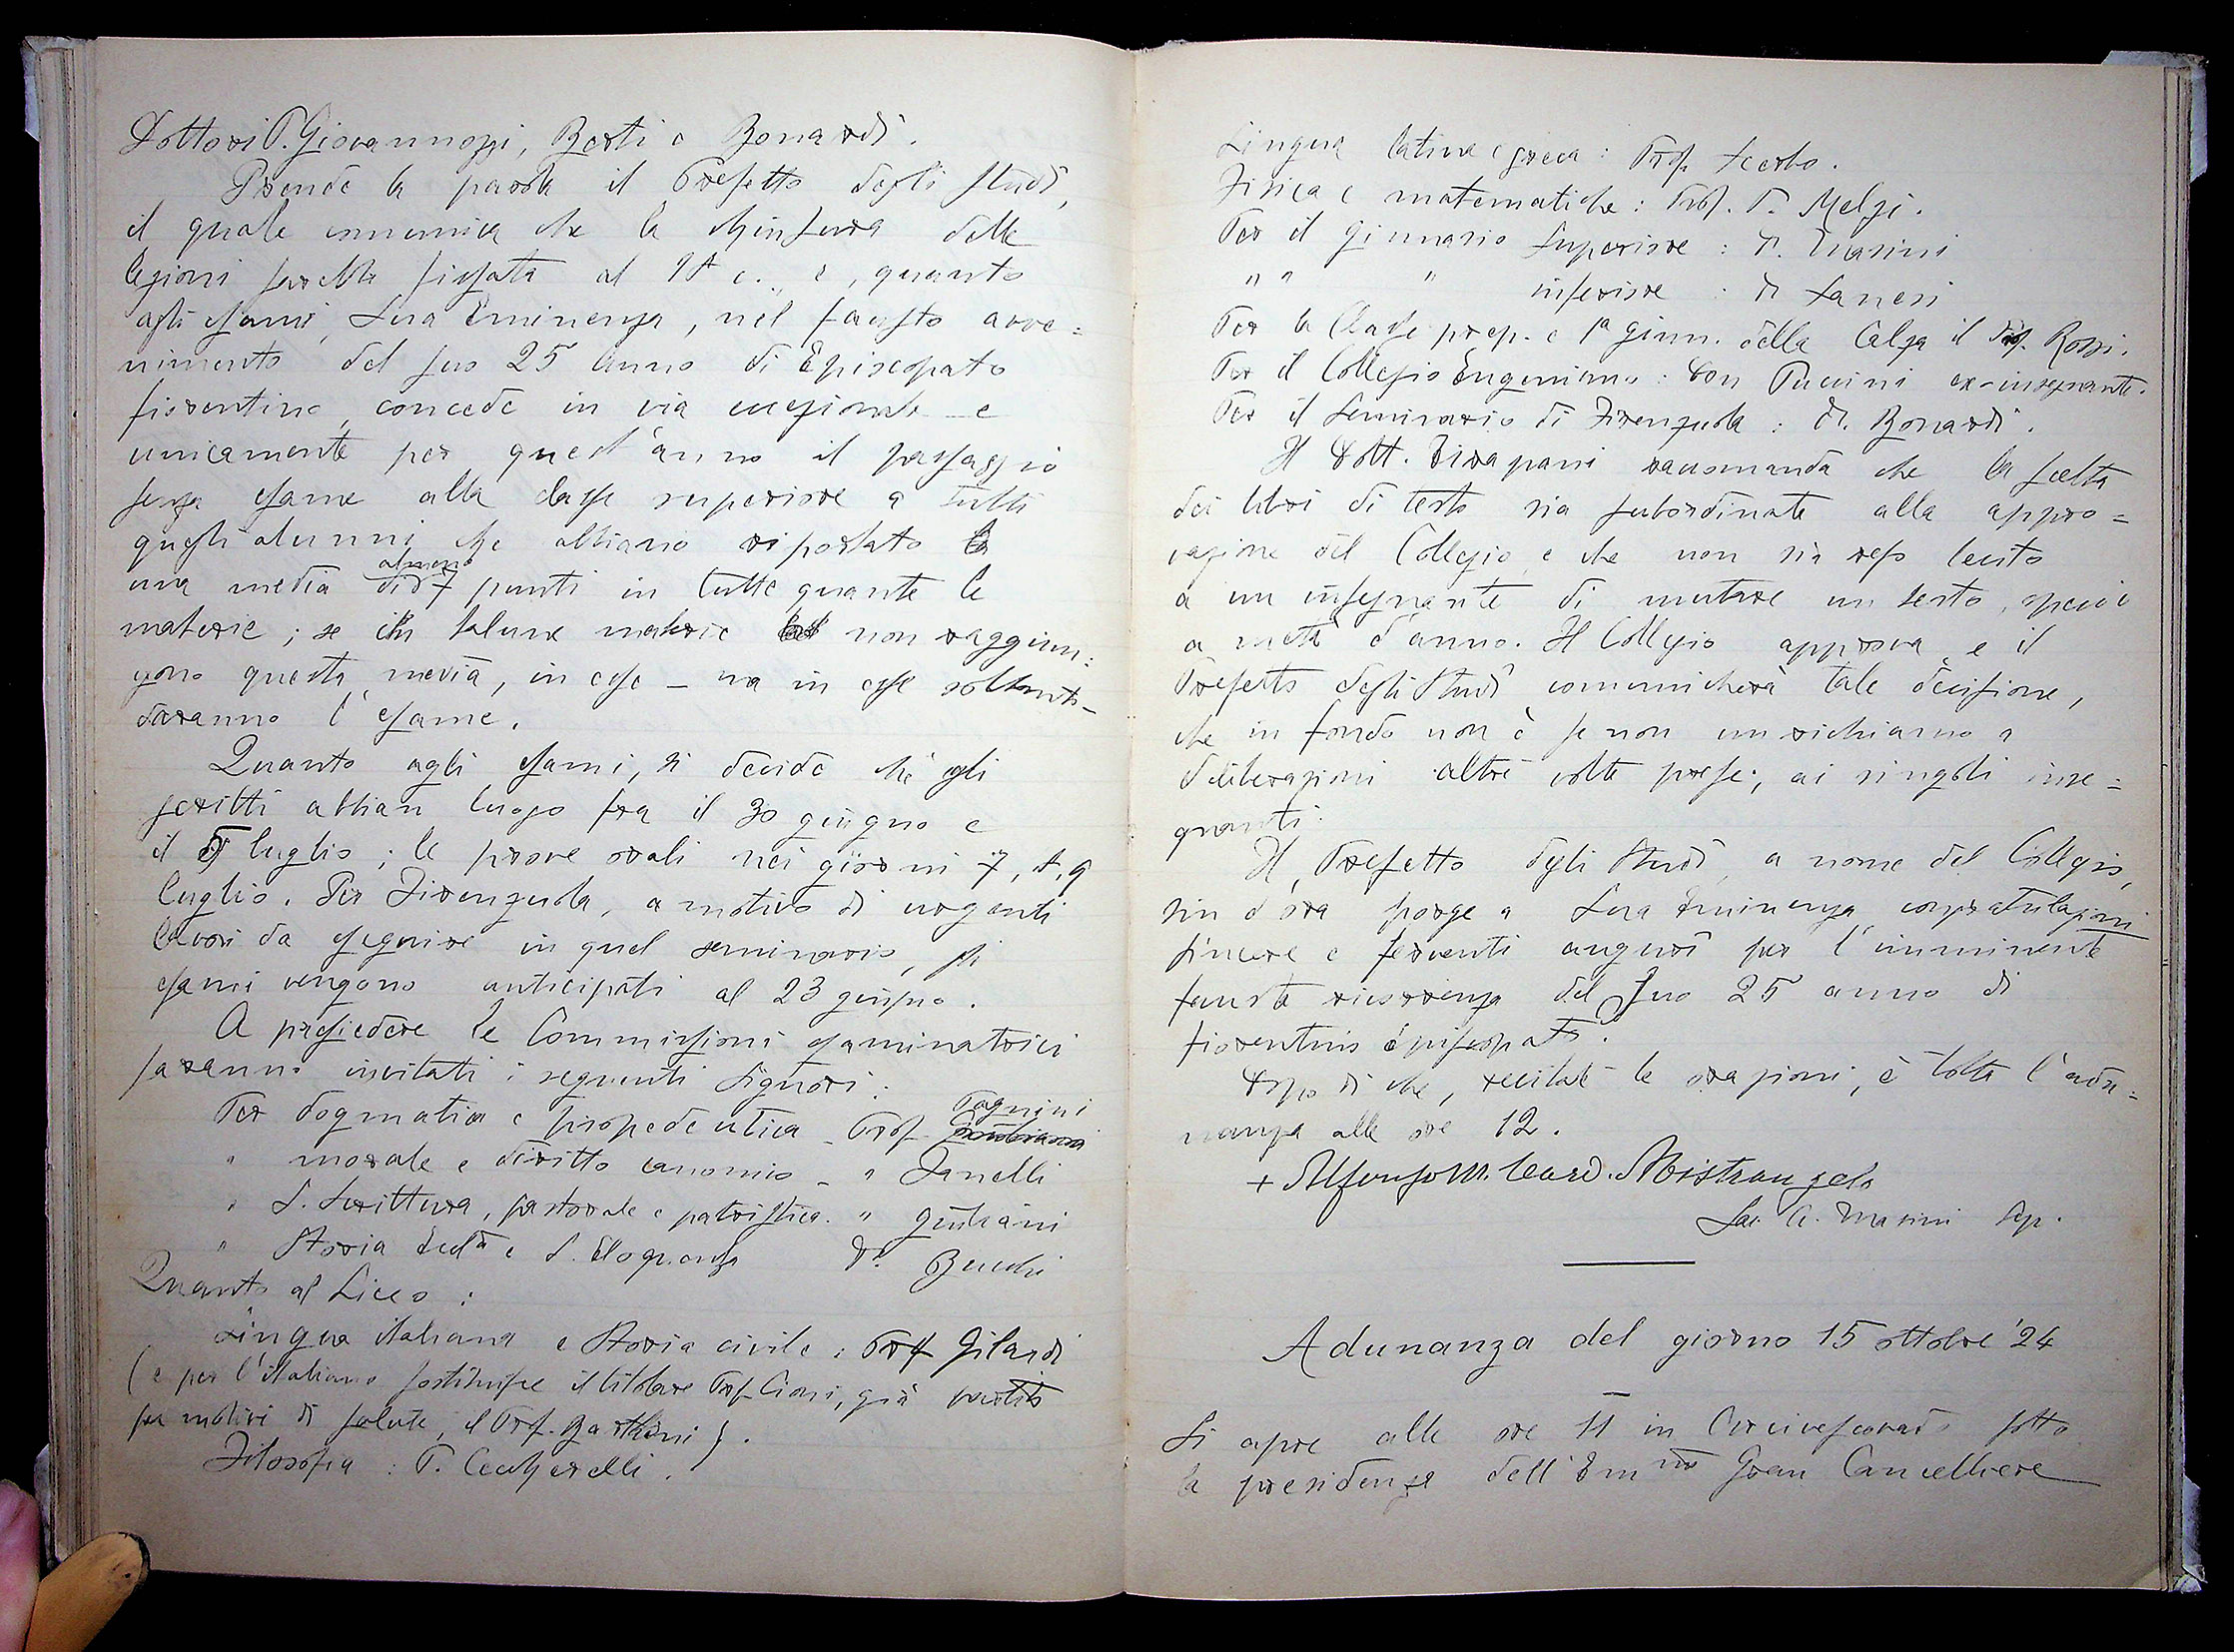 Dottori P. Giovannozzi, Berti e Bonardi.
Prende la parola il Prefetto degli Studi,
il quale comunica che la chiusura delle
lezioni sarebbe fissata al 18 c., e, quanto
agli esami, Sua Eminenza, nel fausto avve=
nimento del suo 25 anno di Episcopato
fiorentino, concede in via eccezionale e
unicamente per quest'anno il passaggio
senza esame alla classe superiore a tutti
quegli alunni che abbiano riportato
una media almeno di 7 punti in tutte quante le
materie; se in talune materie non raggiun=
gono questa media, in esse – ma in esse soltanto –
daranno l'esame.
Quanto agli esami, si decide che gli
scritti abbian luogo fra il 30 giugno e
il 5 luglio; le prove orali nei giorni 7, 8, 9
luglio. Per Firenzuola, a motivo di urgenti
lavori da eseguire in quel seminario, gli
esami vengono anticipati al 23 giugno.
A presiedere le Commissioni esaminatrici
saranno invitati i seguenti Signori:
Per dogmatica e propedeutica – Prof. Tagnini
" morale e diritto canonico – " Fanelli
" S. Scrittura, pastorale e patristica. " Giuliani
" Storia Eccl.ca e S. Eloquenza Dr. Bucchi
Quanto al Liceo:
Lingua italiana e Storia civile: Prof Gilardi
(e per l'italiano sostituisce il titolare Prof Cioni, già partito
per motivi di salute, il Prof. ).
Filosofia: P. Ceccherelli.
Lingua latina e greca: Prof. Scerbo.
Fisica e matematiche: Prof. P. Melzi.
Per il ginnasio superiore: D. Masini
" " " inferiore: D. Sanesi
Per la Classe prep. e 1ª ginn. della Calza il Prof. Rossi.
Per il Collegio Eugeniano: Don Puccini ex-insegnante.
Per il Seminario di Firenzuola: D. Bonardi.
Il Dott. Tirapani raccomanda che la scelta
dei libri di testo sia subordinata alla appro=
vazione del Collegio, e che non sia reso lecito
a un insegnante di mutare un testo, specie
a metà d'anno. Il Collegio approva, e il
Prefetto degli Studi comunicherà tale decisione,
che in fondo non è se non un richiamo a
deliberazioni altre volte prese, ai singoli inse=
gnanti.
Il Prefetto degli Studi, a nome del Collegio,
sin d'ora porge a Sua Eminenza congratulazioni
sincere e ferventi auguri per l'imminente
fausta ricorrenza del Suo 25 anno di
fiorentino episcopato.
Dopo di che, recitate le orazioni, è tolta l'adu=
nanza alle ore 12.
+ Alfonso M. Card. Mistrangelo
Sac. A. Masini Sgr.
Adunanza del giorno 15 ottobre '24
Si apre alle ore 11 in Arcivescovado sotto
la presidenza dell'Emmo Gran Cancelliere